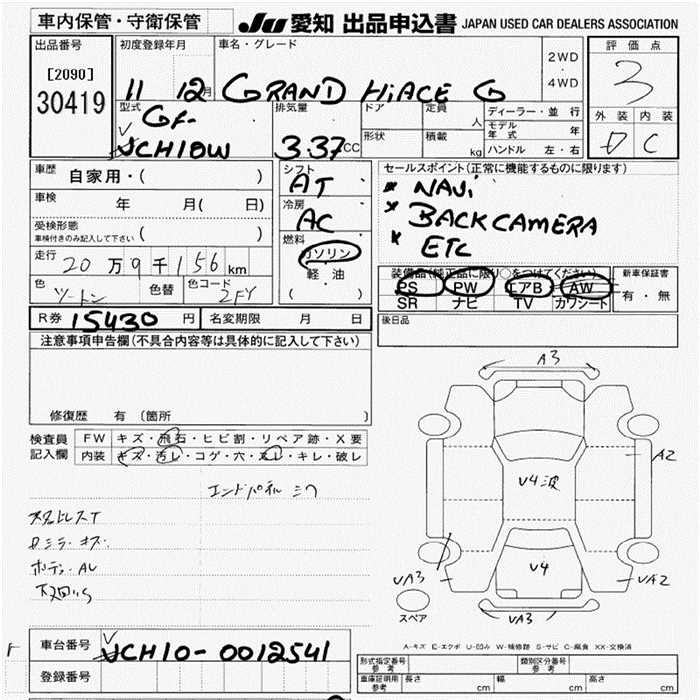 車内保管・守衛保管
JU 愛知 出品申込書 JAPAN USED CAR DEALERS ASSOCIATION
出品番号
[2090]
30419
初度登録年月
11 12月
車名・グレード
GRAND HiACE G
2WD
・
4WD
評価点
3
外装 内装
D C
型式
GF-
VCH10W
排気量
3.37CC
ドア
定員
人
形状
積載
kg
ディーラー・並行
モデル年式 年
ハンドル 左・右
車歴
自家用・( )
車検
年 月( 日)
受検形態
車検付きのみ記入して下さい ( )
走行
20万9千156km
色
ツートン
色替
色コード
2FY
シフト
AT
冷房
AC
燃料
ガソリン
・
軽油
( )
セールスポイント(正常に機能するものに限ります)
* NAVi
* BACK CAMERA
* ETC
装備品(純正品に限り○をつけてください)
PS PW エアB AW
SR ナビ TV カワシート
新車保証書
有・無
R券 15430円
名変期限 月 日
後日品
注意事項申告欄(不具合内容等は具体的に記入して下さい)
修復歴 有 〔箇所
検査員
記入欄
FW キズ・飛石・ヒビ割・リペア跡・X要
内装 キズ・汚レ・コゲ・穴・スレ・キレ・破レ
エンドパネル ミワ
ボディ・AU
A3
A2
V4波
V4
VA3
VA2
VA3
スペア
A-キズ E-エクボ U-凹み W-補修跡 S-サビ C-腐食 XX-交換済
車台番号
VCH10-0012541
登録番号
形式指定番号
参考
類別区分番号
参考
車庫証明用
参考
長さ cm
幅 cm
高さ cm